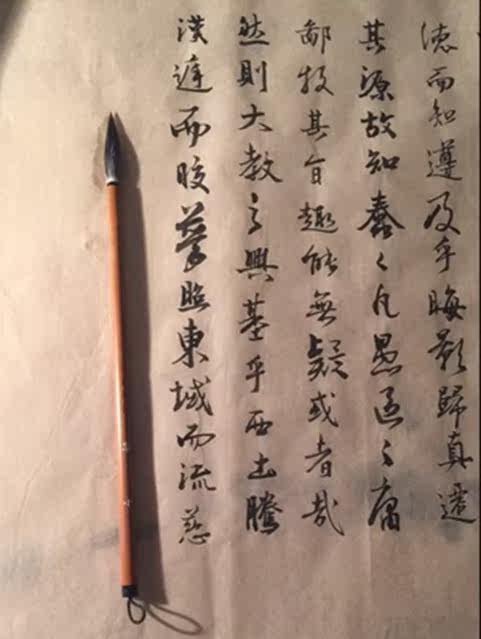 德而知遵及乎晦影歸真遷
其源故知蠢々凡愚區々庸
鄙投其旨趣能無疑或者哉
然則大教之興基乎西土騰
漢庭而皎夢照東域而流慈